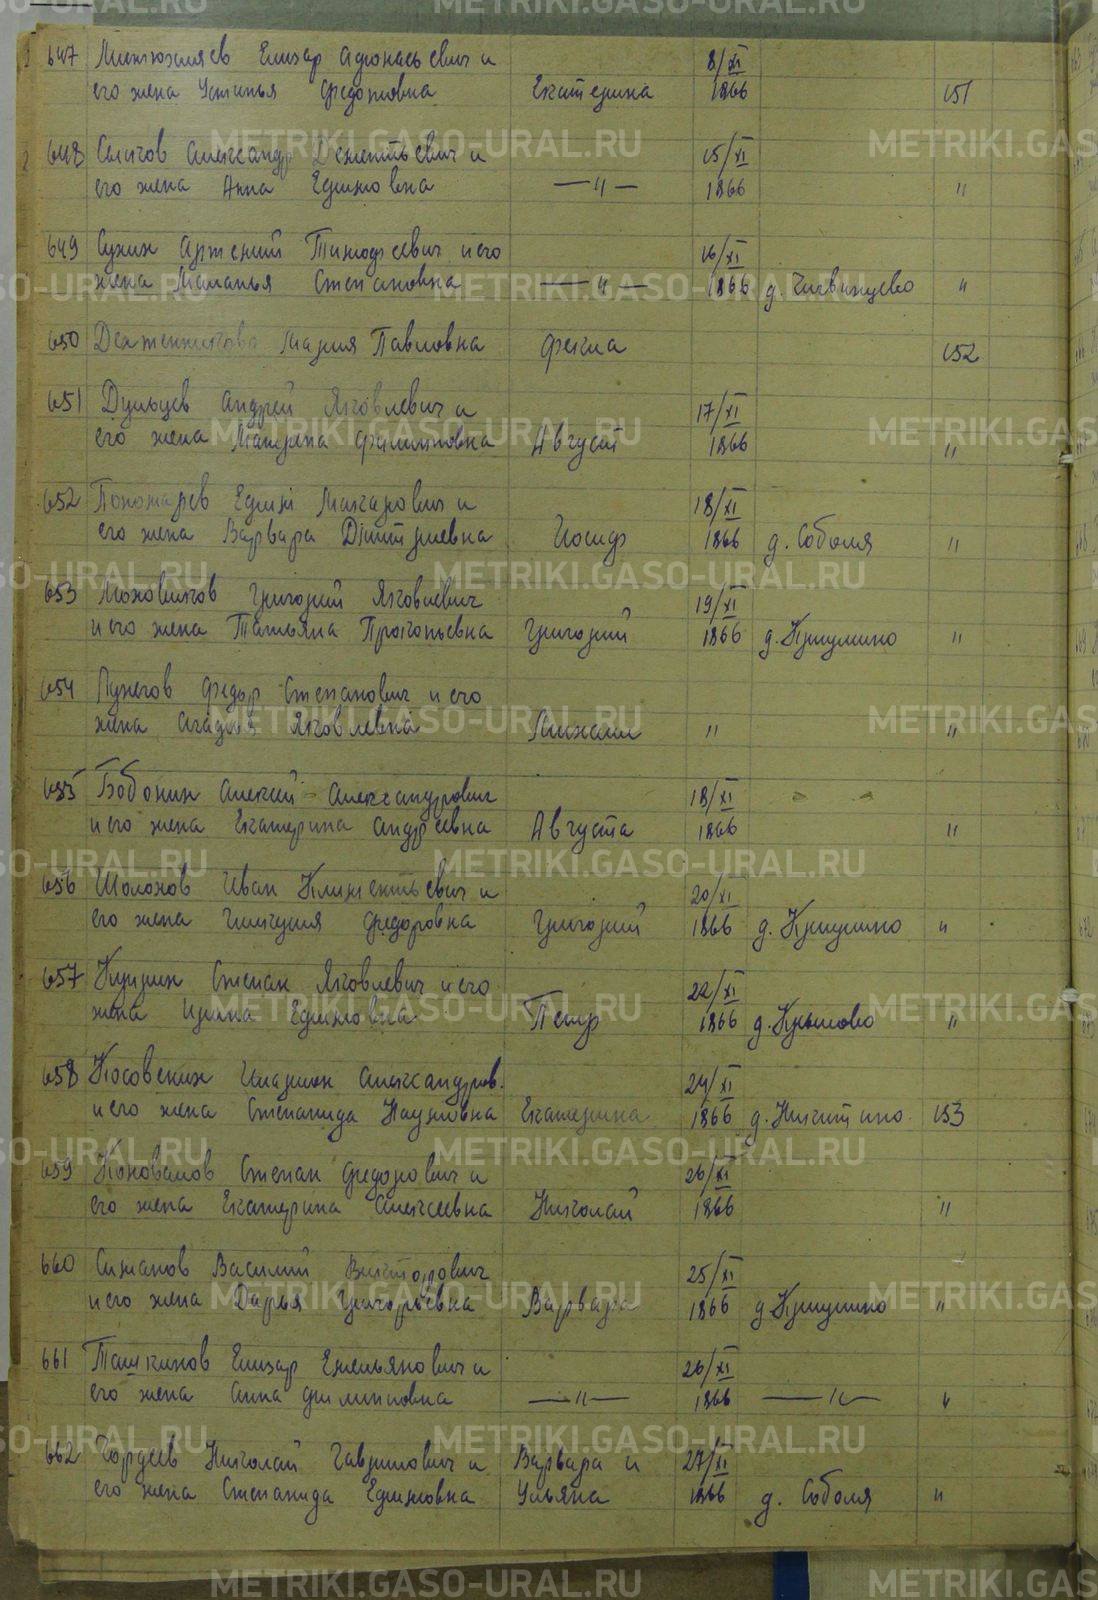 647 Минюхляев Елизар Афонасьевич и 8/XI
его жена Устинья Федотовна Екатерина 1866 151
648 Александр Дементьевич и 15/XI
его жена Анна Ефимовна —"— 1866 "
649 Сухих Арсений Тимофеевич и его 16/XI
жена Маланья Степановна —"— 1866 д. Чигвинцево "
650 Мария Павловна Фекла 152
651 Дульцев Андрей Яковлевич и 17/XI
его жена Матрена Филипповна Август 1866 "
652 Пономарев Ефим Макарович и 18/XI
его жена Варвара Дмитриевна Иосиф 1866 д. Соболя "
653 Моховиков Григорий Яковлевич 19/XI
и его жена Татьяна Прокопьевна Григорий 1866 д. Крюшино "
654 Лунегов Федор Степанович и его
жена Агафья Яковлевна Михаил " "
655 Бобонин Алексей Александрович 18/XI
и его жена Екатерина Андреевна Августа 1866 "
656 Шолохов Иван Климентьевич и 20/XI
его жена Гликерия Федоровна Григорий 1866 д. Крюшино "
657 Степан Яковлевич и его 22/XI
жена Ирина Ефимовна Петр 1866 д. Крылово "
658 Косовских Иларион Александров. 24/XI
и его жена Степанида Наумовна Екатерина 1866 д. Никитино. 153
659 Коновалов Степан Федорович и 26/XI
его жена Екатерина Алексеевна Николай 1866 "
660 Симанов Василий Викторович 25/XI
и его жена Дарья Григорьевна Варвара 1866 д. Крюшино "
661 Ташкинов Елизар Емельянович и 26/XI
его жена Анна Филипповна —"— 1866 —"— "
662 Гордеев Николай Гаврилович и Варвара и 27/XI
его жена Степанида Ефимовна Ульяна 1866 д. Соболя "
METRIKI.GASO-URAL.RU